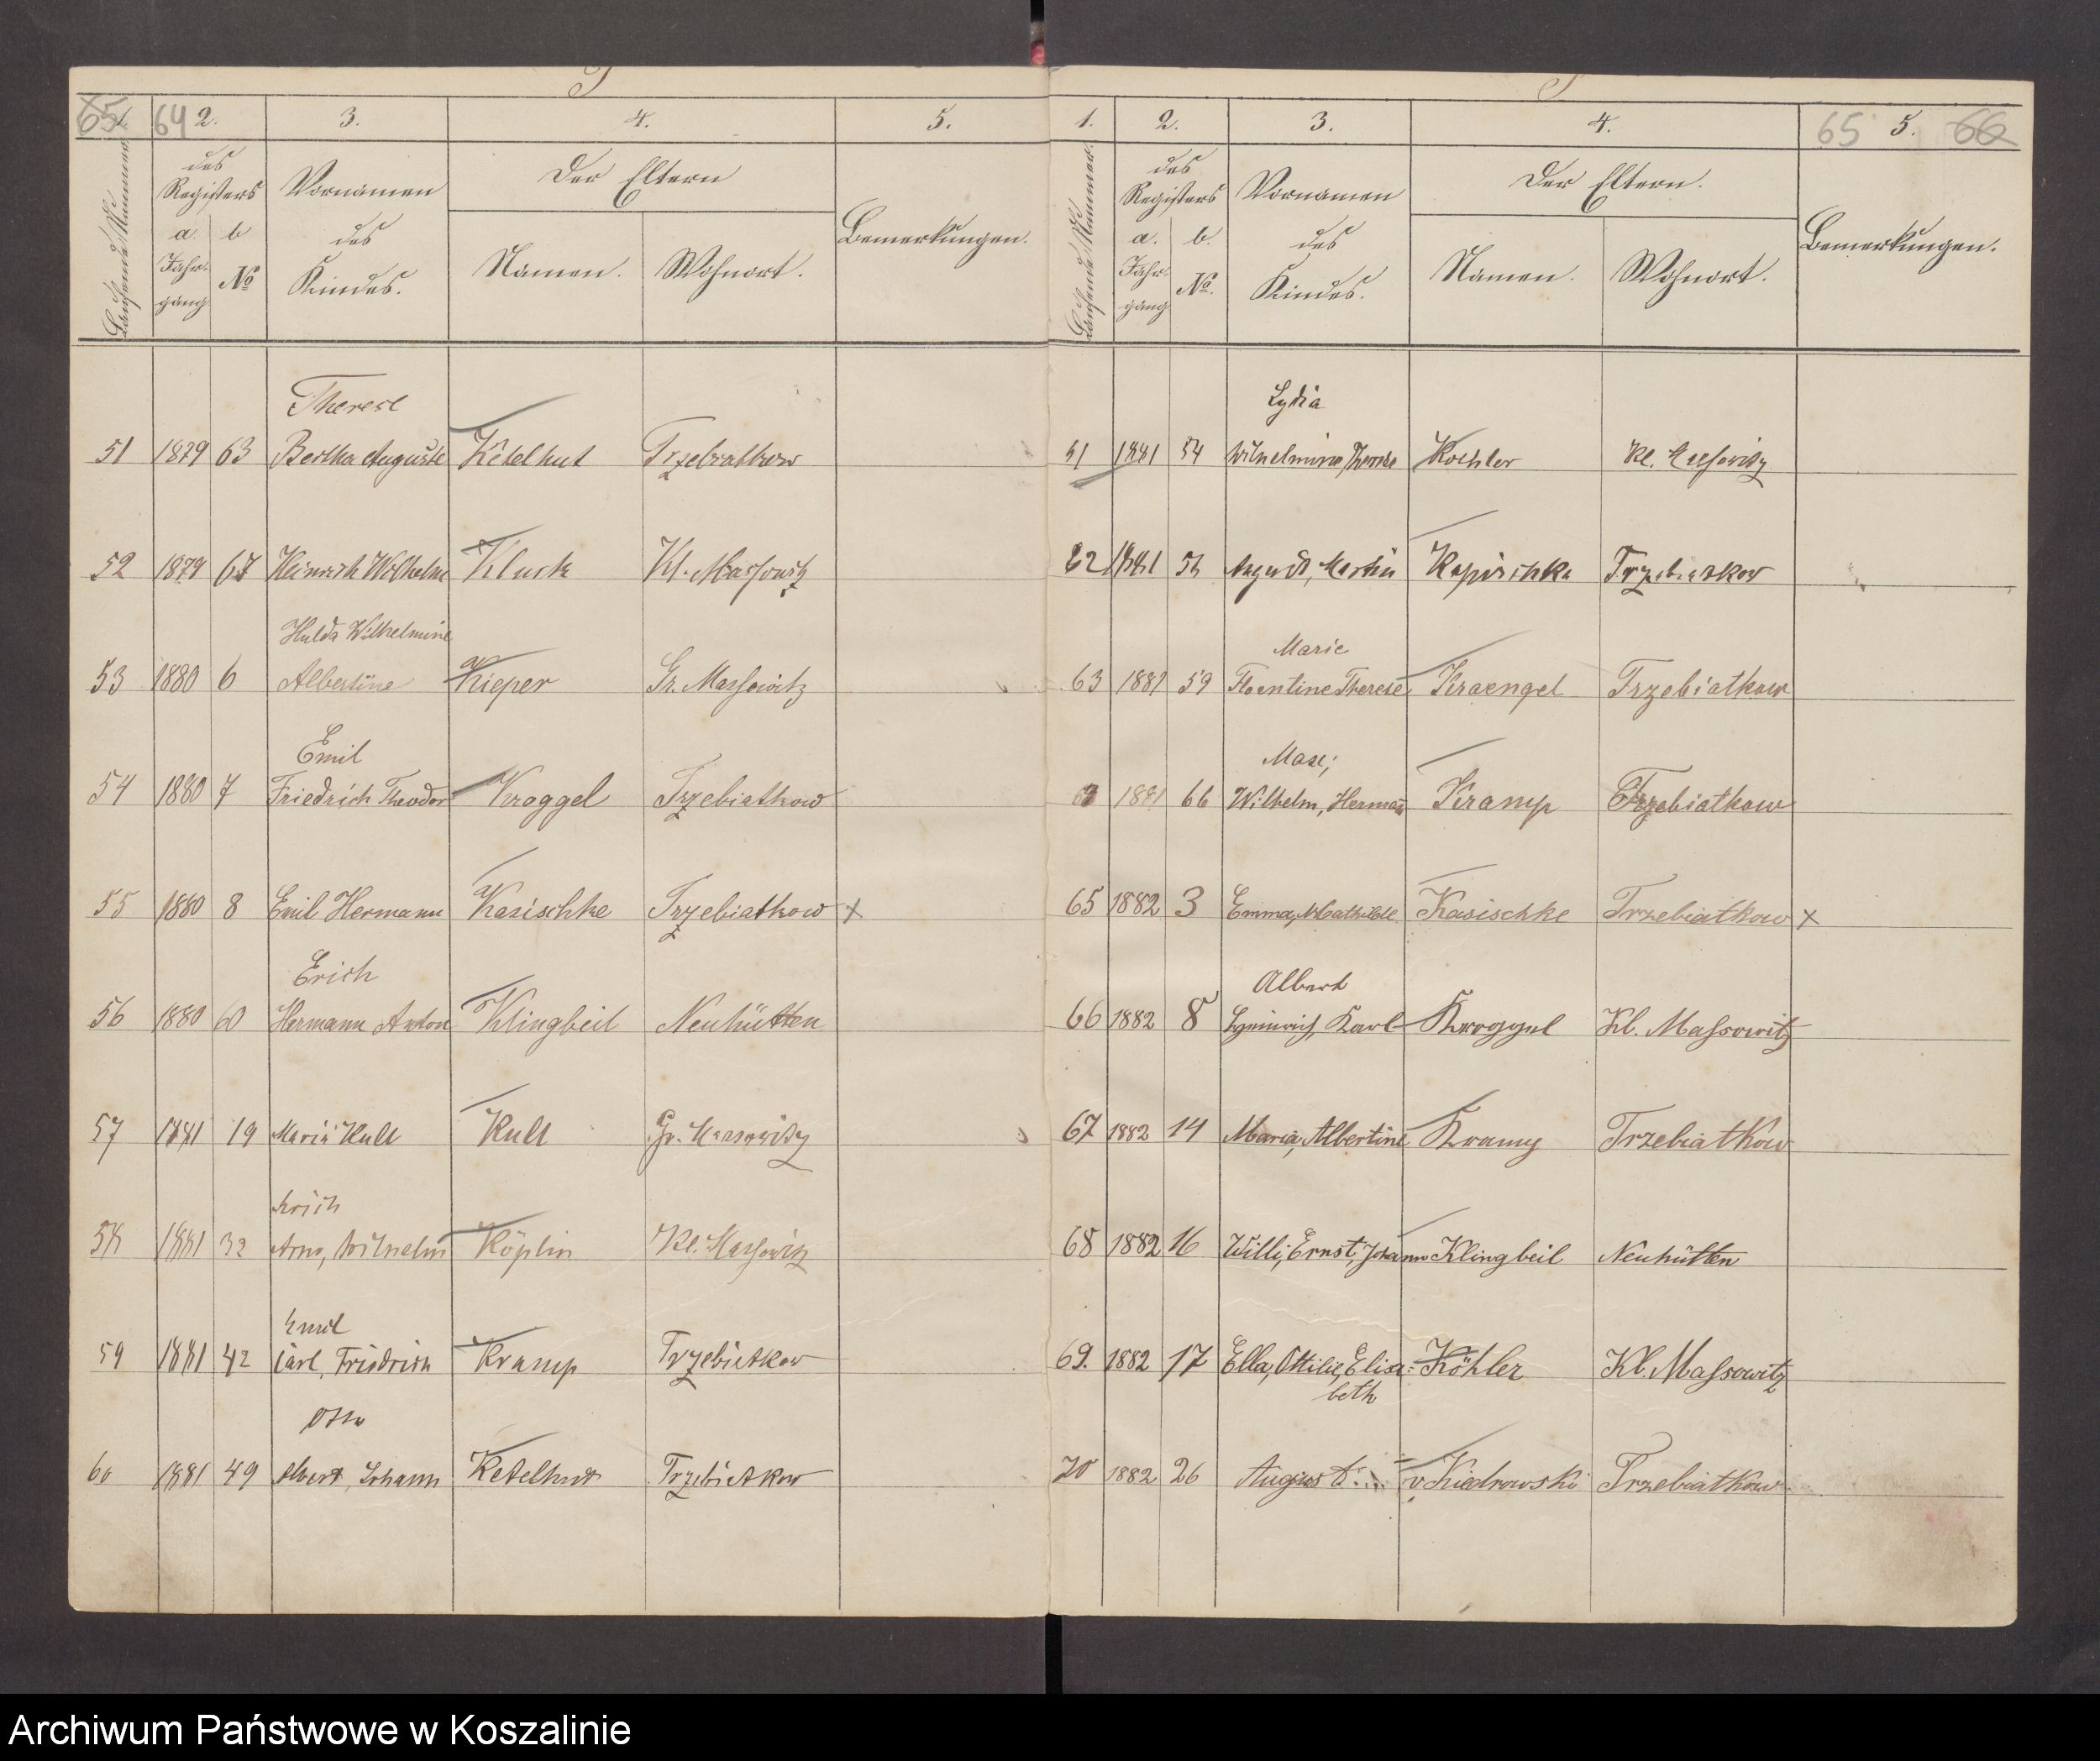 65 1. 64 2. 3. 4. 5.
Laufende Nummer
des Registers
a. Jahrgang
b. №
Vornamen des Kindes.
Der Eltern
Namen. Wohnort.
Bemerkungen.
Therese
51 1879 63 Bertha Auguste Ketelhut Trzebiatkow
52 1879 67 Heinrich Wilhelm Kluck Kl. Massowitz
Hulda Wilhelmine
53 1880 6 Albertine Kieper Gr. Massowitz
Emil
54 1880 7 Friedrich Theodor Kroggel Trzebiatkow
55 1880 8 Emil Hermann Kasischke Trzebiatkow x
Erich
56 1880 60 Hermann Anton Klingbeil Neuhütten
57 1881 19 Maria Kull Kull Gr. Massowitz
Erich
58 1881 32 Arno, Wilhelm Köplin Kl. Massowitz
Emil
59 1881 42 Carl, Friedrich Kramp Trzebiatkow
Otto
60 1881 49 Albert, Johann Ketelhut Trzebiatkow
1. 2. 3. 4. 65 5. 66
Laufende Nummer.
des Registers
a. Jahrgang
b. №.
Vornamen des Kindes.
Der Eltern.
Namen. Wohnort.
Bemerkungen.
Lydia
61 1881 54 Wilhelmine, Therese Koehler Kl. Massowitz
62 1881 August, Martin Trzebiatkow
Marie
63 1881 59 Florentine Therese Kraengel Trzebiatkow
Max,
1881 66 Wilhelm, Hermann Kramp Trzebiatkow
65 1882 3 Emma, Mathilde Kasischke Trzebiatkow x
Albert
66 1882 8 Heinrich, Karl Kroggel Kl. Massowitz
67 1882 14 Maria, Albertine Kramp Trzebiatkow
68 1882 16 Willi, Ernst, Johann Klingbeil Neuhütten
69. 1882 17 Ella, Ottilie, Elisa- Köhler Kl. Massowitz
beth
70 1882 26 August v. Kiedrowski Trzebiatkow
Archiwum Państwowe w Koszalinie